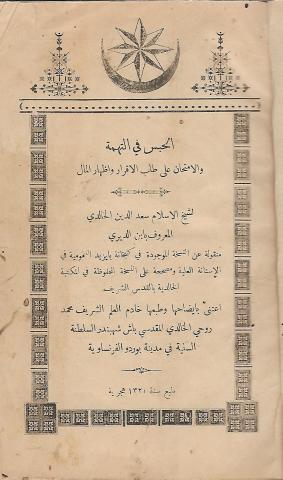 الحبس في التهمة
والامتحان على طلب الاقرار واظهار المال
لشيخ الاسلام سعد الدين الخالدي
المعروف بابن الديري
منقولة عن النسخة الموجودة في كتبخانة بايزيد العمومية في
الاستانة العلية ومصححة على النسخة المحفوظة في المكتبة
الخالدية بالقدس الشريف
اعتنى بايضاحها وطبعها خادم العلم الشريف محمد
روحي الخالدي المقدسي باش شهبندر السلطنة
السنية في مدينة بوردو الفرنساوية
طبع سنة ١٣٢١ هجرية